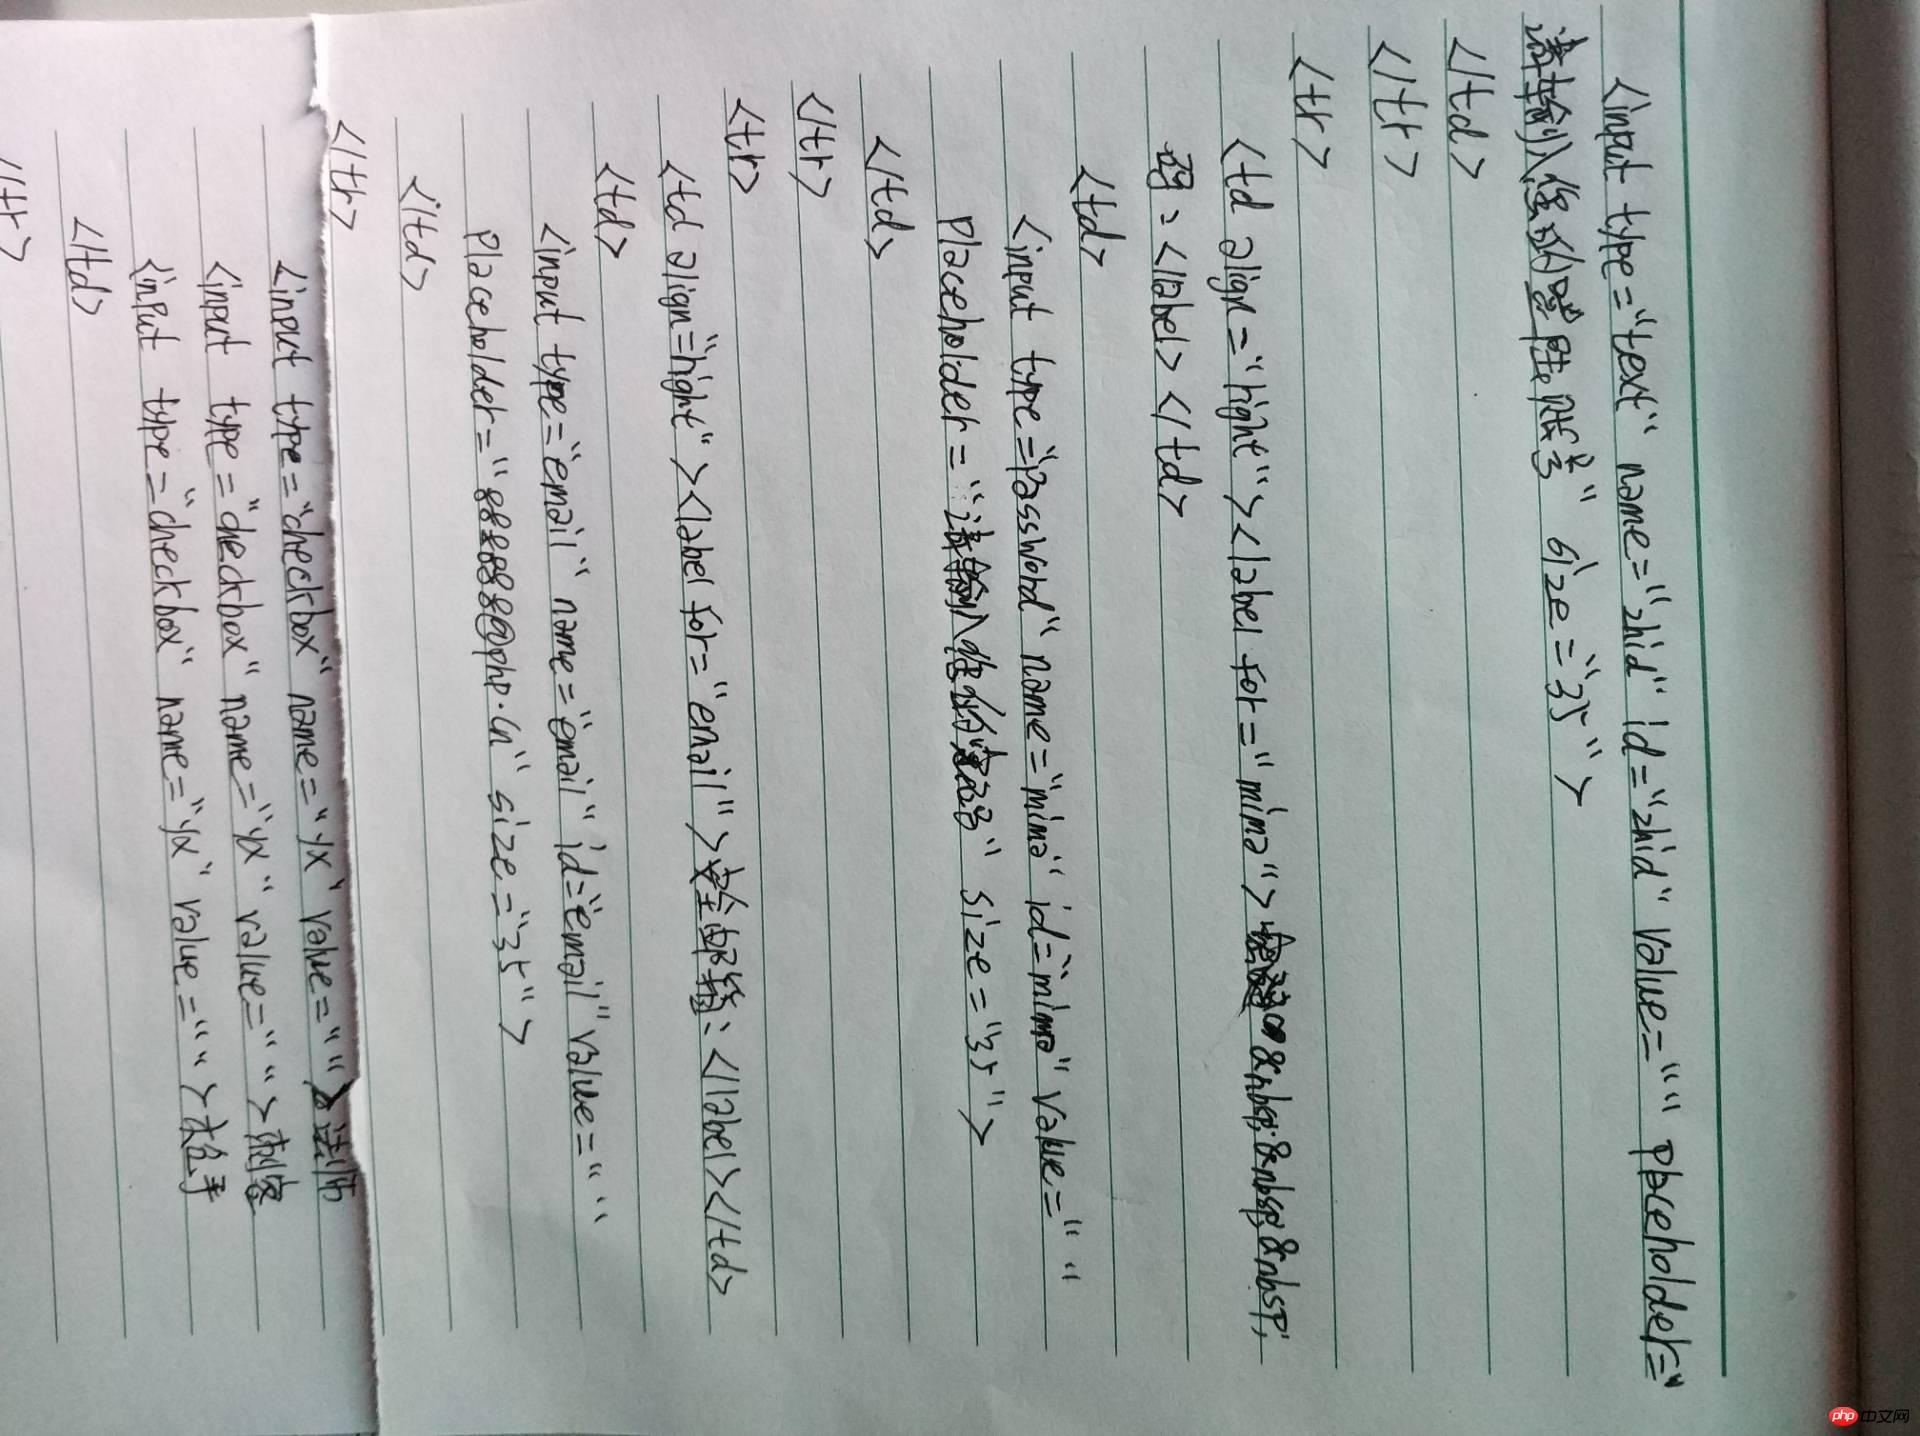 <input type="text" name="zhid" id="zhid" value="" placeholder="
请输入您的登陆账号" size="35">
</td>
</tr>
<tr>
<td align="right"><label for="mima">密 &nbsp;&nbsp;&nbsp;
码:<label></td>
<td>
<input type="password" name="mima" id="mima" value=""
placeholder="请输入您的密码" size="35">
</td>
</tr>
<tr>
<td align="right"><label for="email">安全邮箱:</label></td>
<td>
<input type="email" name="email" id="email" value=""
placeholder="888888@php.cn" size="35">
</td>
</tr>
<input type="checkbox" name="yx" value="">法师
<input type="checkbox" name="yx" value="">刺客
<input type="checkbox" name="yx" value="">
</td>
</tr>
php 中文网